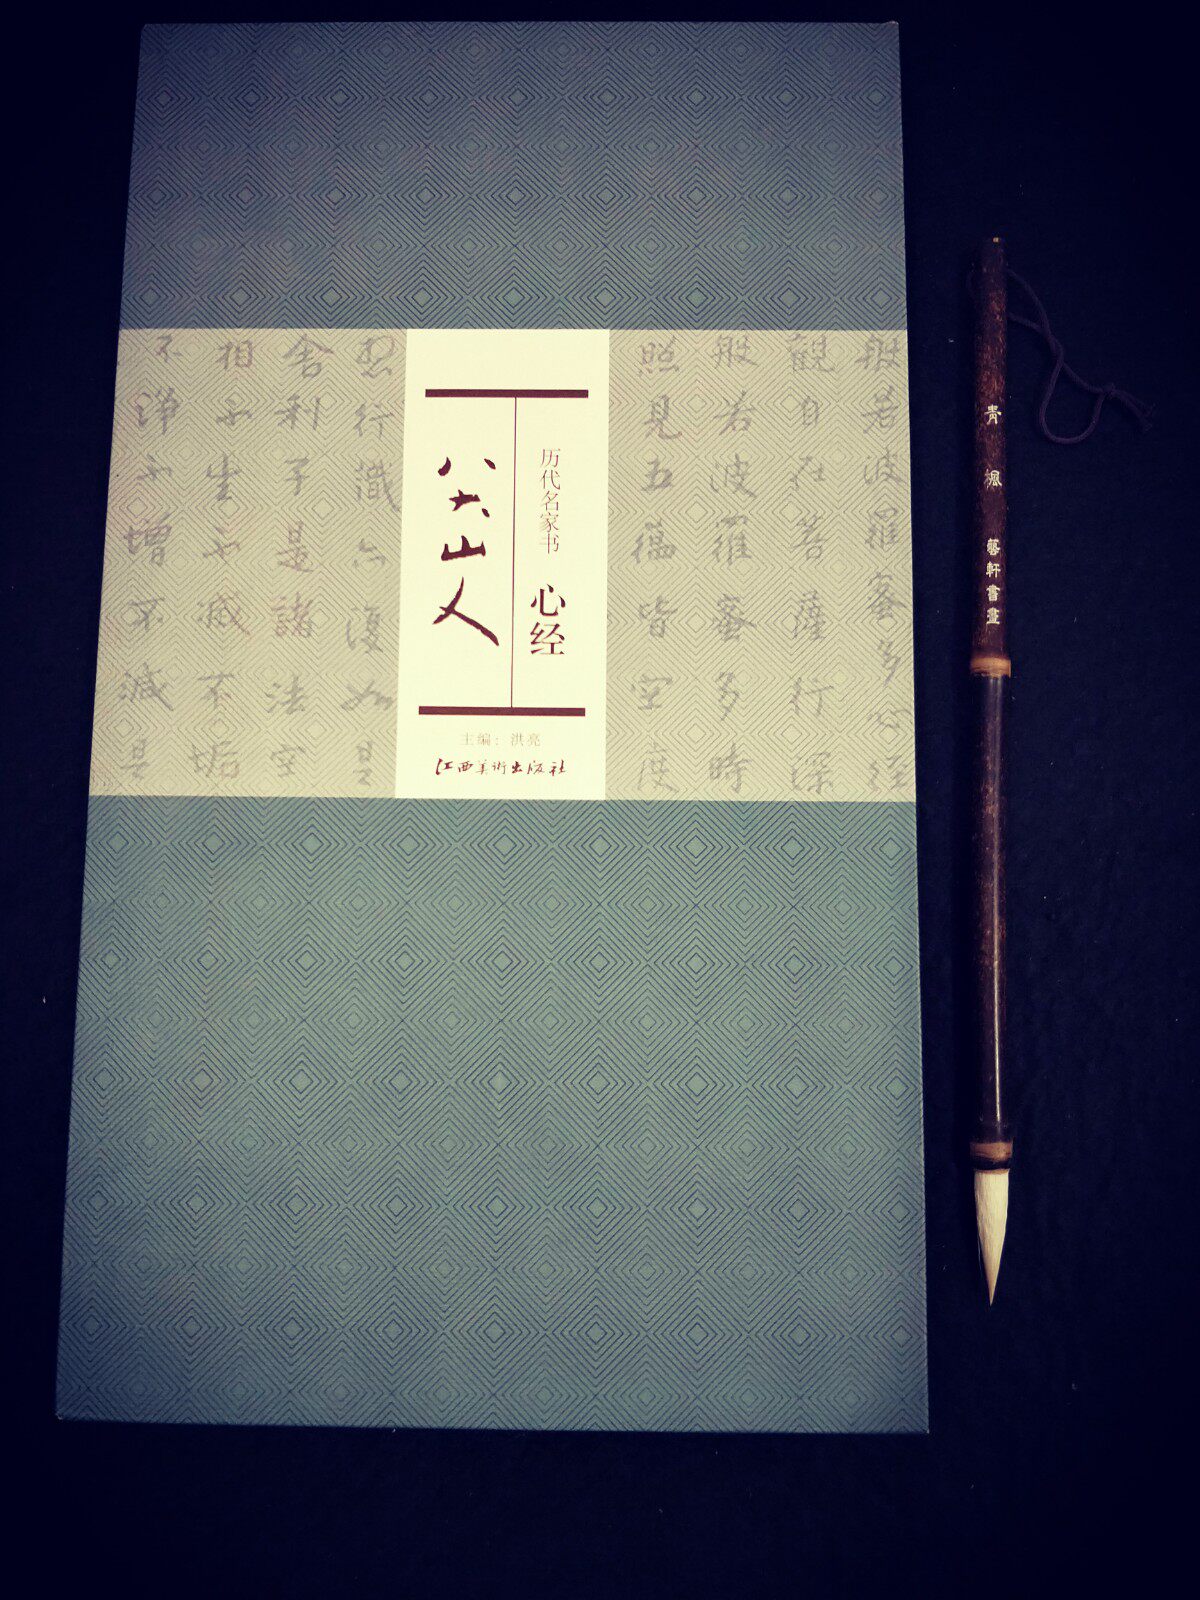 般若波羅蜜多心經
觀自在菩薩行深
般若波羅蜜多時
照見五蘊皆空度
历代名家书 心经
八大山人
主编：洪亮
江西美術出版社
想行識亦復如是
舍利子是諸法空
相不生不滅不垢
不淨不增不減是
青楓 藝軒書畫